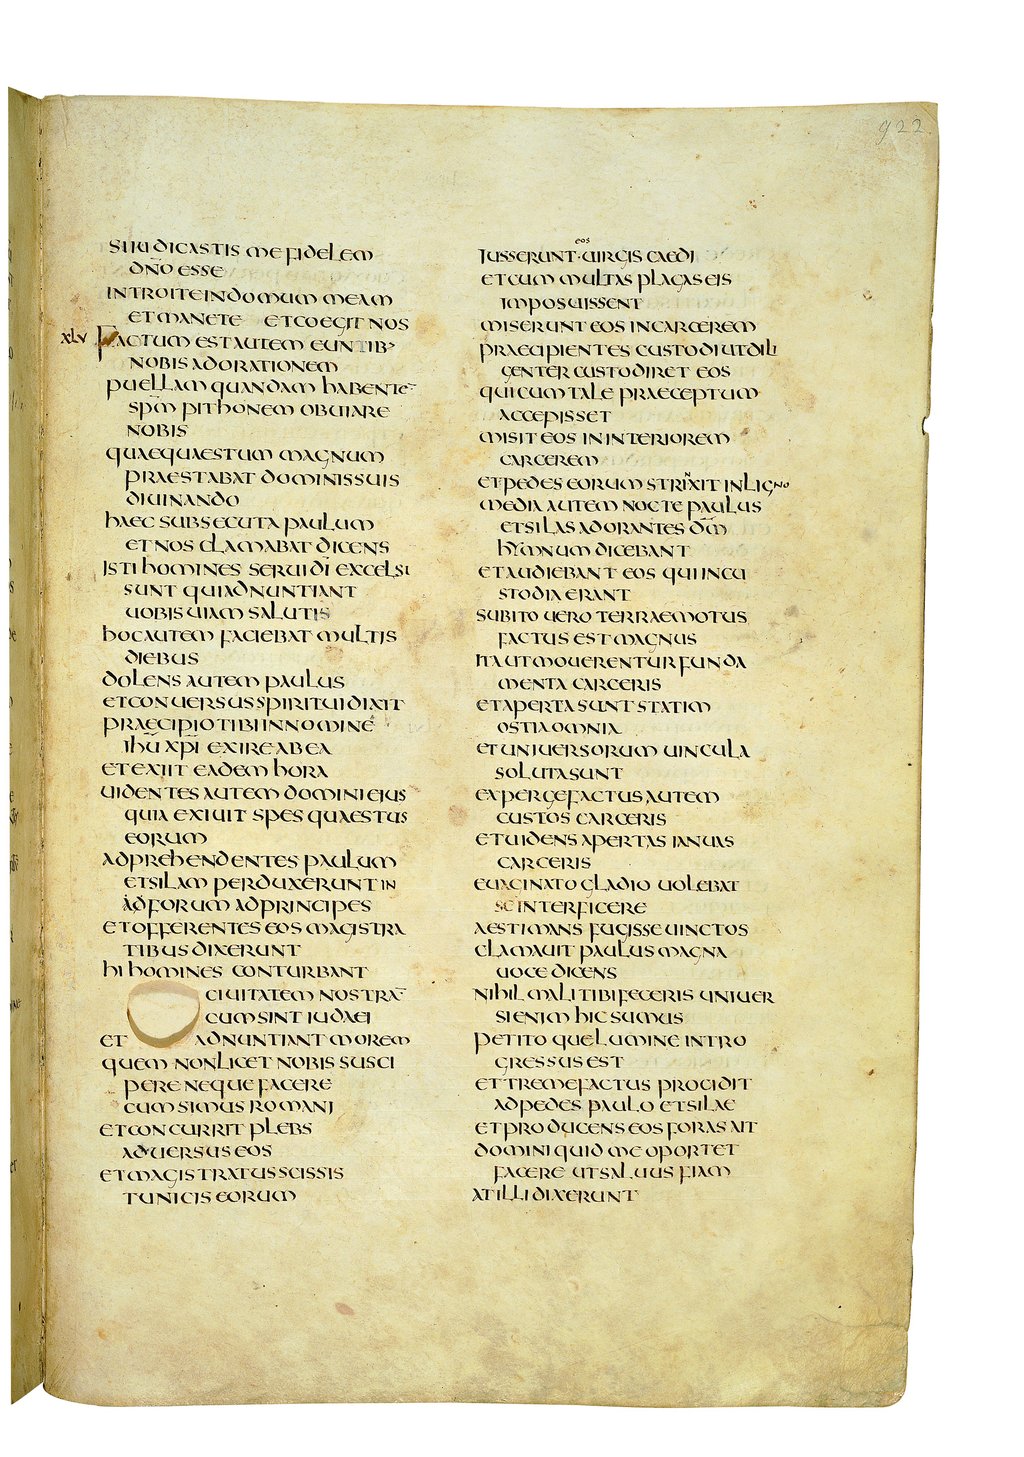 922
SI IUDICASTIS ME FIDELEM
DN̅O ESSE
INTROITE IN DOMUM MEAM
ET MANETE ET COEGIT NOS
XLV FACTUM EST AUTEM EUNTIB'
NOBIS ADORATIONEM
PUELLAM QUANDAM HABENTE̅
SPM̅ PITHONEM OBUIARE
NOBIS
QUAE QUAESTUM MAGNUM
PRAESTABAT DOMINIS SUIS
DIUINANDO
HAEC SUBSECUTA PAULUM
ET NOS CLAMABAT DICENS
ISTI HOMINES SERUI DI̅ EXCELSI
SUNT QUI ADNUNTIANT
UOBIS UIAM SALUTIS
HOC AUTEM FACIEBAT MULTIS
DIEBUS
DOLENS AUTEM PAULUS
ET CONUERSUS SPIRITUI DIXIT
PRAECIPIO TIBI IN NOMINE
IHU̅ XPI̅ EXIRE AB EA
ET EXIIT EADEM HORA
UIDENTES AUTEM DOMINI EIUS
QUIA EXIUIT SPES QUAESTUS
EORUM
ADPREHENDENTES PAULUM
ET SILAM PERDUXERUNT IN
AD FORUM AD PRINCIPES
ET OFFERENTES EOS MAGISTRA
TIBUS DIXERUNT
HI HOMINES CONTURBANT
CIUITATEM NOSTRA̅
CUM SINT IUDAEI
ET ADNUNTIANT MOREM
QUEM NON LICET NOBIS SUSCI
PERE NEQUE FACERE
CUM SIMUS ROMANI
ET CONCURRIT PLEBS
ADUERSUS EOS
ET MAGISTRATUS SCISSIS
TUNICIS EORUM
eos
IUSSERUNT · UIRGIS CAEDI
ET CUM MULTAS PLAGAS EIS
IMPOSUISSENT
MISERUNT EOS IN CARCEREM
PRAECIPIENTES CUSTODI UT DILI
GENTER CUSTODIRET EOS
QUI CUM TALE PRAECEPTUM
ACCEPISSET
MISIT EOS IN INTERIOREM
CARCEREM
ET PEDES EORUM STRIN̂XIT IN LIGNO
MEDIA AUTEM NOCTE PAULUS
ET SILAS ADORANTES DM̅
HYMNUM DICEBANT
ET AUDIEBANT EOS QUI IN CU
STODIA ERANT
SUBITO UERO TERRAEMOTUS
FACTUS EST MAGNUS
ITA UT MOUERENTUR FUNDA
MENTA CARCERIS
ET APERTA SUNT STATIM
OSTIA OMNIA
ET UNIUERSORUM UINCULA
SOLUTA SUNT
EXPERGEFACTUS AUTEM
CUSTOS CARCERIS
ET UIDENS APERTAS IANUAS
CARCERIS
EUAGINATO GLADIO UOLEBAT
SE INTERFICERE
AESTIMANS FUGISSE UINCTOS
CLAMAUIT PAULUS MAGNA
UOCE DICENS
NIHIL MALI TIBI FECERIS UNIUER
SI ENIM HIC SUMUS
PETITO QUE LUMINE INTRO
GRESSUS EST
ET TREMEFACTUS PROCIDIT
AD PEDES PAULO ET SILAE
ET PRODUCENS EOS FORAS AIT
DOMINI QUID ME OPORTET
FACERE UT SALUUS FIAM
AT ILLI DIXERUNT